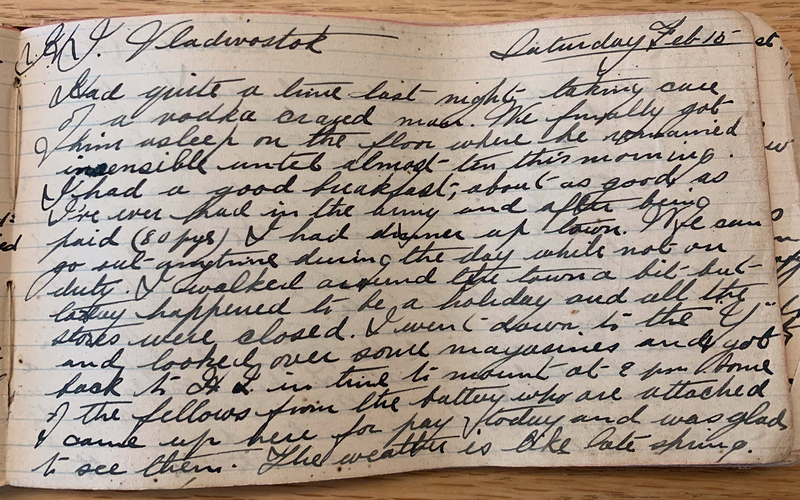 Vladivostok Saturday Feb 15 st.
Had quite a time last night, taking care
of a vodka crazed man. We finally got
him asleep on the floor where he remained
insensible until almost ten this morning.
I had a good breakfast, about as good as
I've ever had in the army and after being
paid (80 pys) I had dinner up town. We can
go out anytime during the day while not on
duty. I walked around the town a bit but
today happened to be a holiday and all the
stores were closed. I went down to the "Y"
and looked over some magasines and got
back to in time to mount at 2 pm Some
of the fellows from the battery who are attached
came up here for pay today and was glad
to see them. The weather is like late spring.